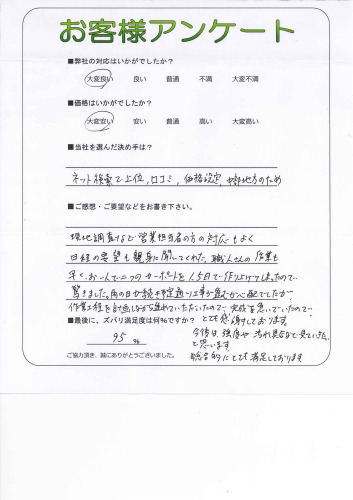 お客様アンケート
■弊社の対応はいかがでしたか？
大変良い 良い 普通 不満 大変不満
■価格はいかがでしたか？
大変安い 安い 普通 高い 大変高い
■当社を選んだ決め手は？
ネット検索で上位,口コミ,価格設定,中部地方のため
■ご感想・ご要望などをお書き下さい。
現地調査など営業担当者の方の対応もよく
日程の要望も親身に聞いてくれた。職人さんの作業も
早く、お一人で二つのカーポートを1.5日で作り上げてしまったので
驚きました。雨の日が続き予定通り工事が進むか心配でしたが
作業工程を計画しながら進めていただいたので、完成を急いでいたので
とても感謝しております。
■最後に、ズバリ満足度は何%ですか？
今後は、強度や汚れ具合など見ていきたい
と思います
95 %
総合的にとても満足しております
ご協力頂き、誠にありがとうございました。